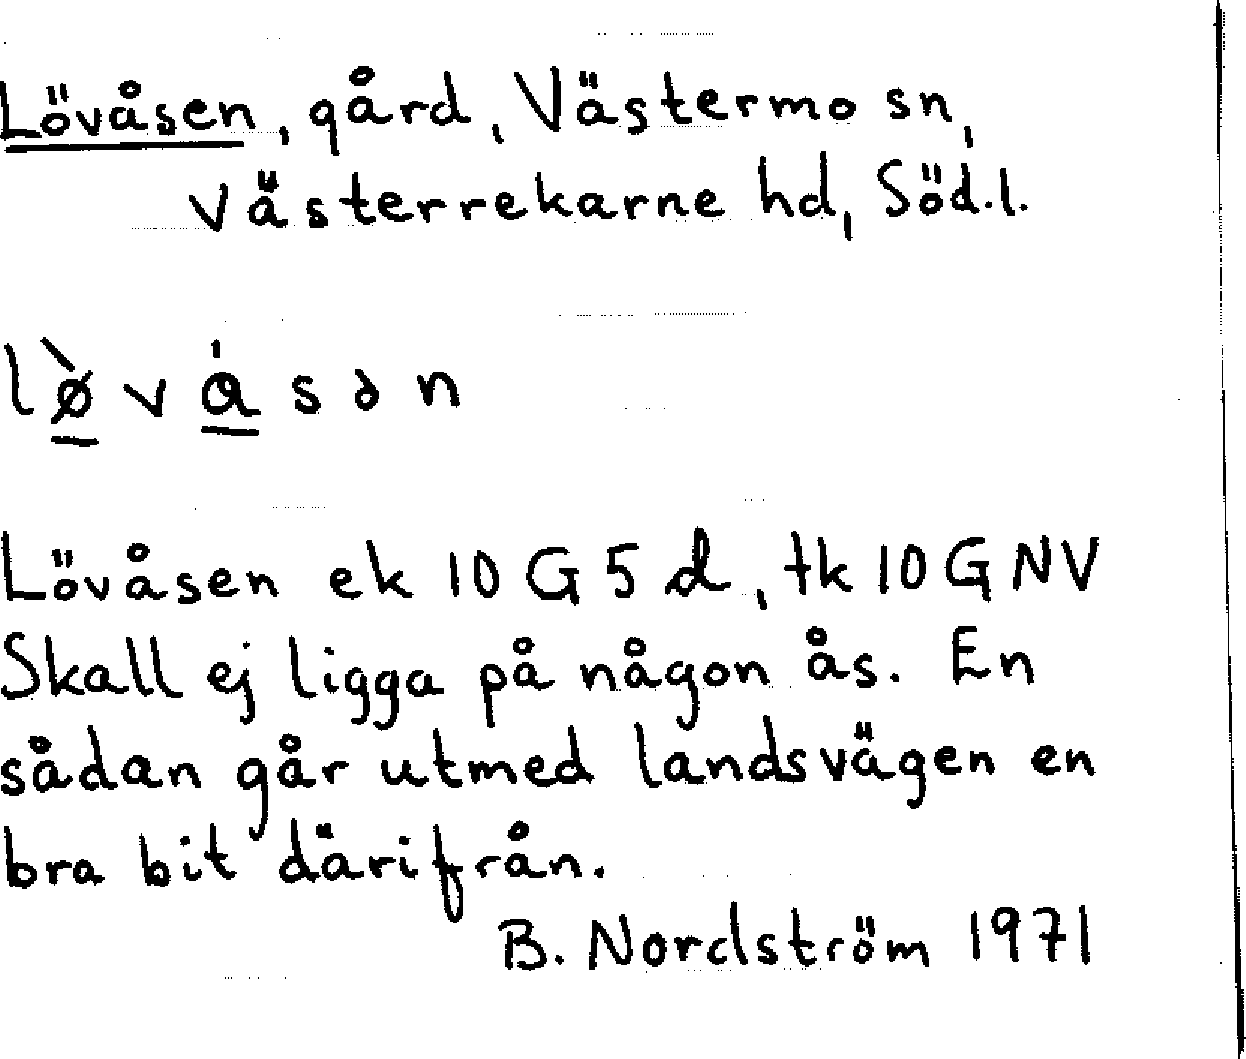 Lövåsen, gård, Västermo sn,
Västerrekarne hd, Söd.l.
lø̠̀vɑ̠́sən
Lövåsen ek 10 G 5 d, tk 10 G NV
Skall ej ligga på någon ås. En
sådan går utmed landsvägen en
bra bit därifrån.
B. Nordström 1971